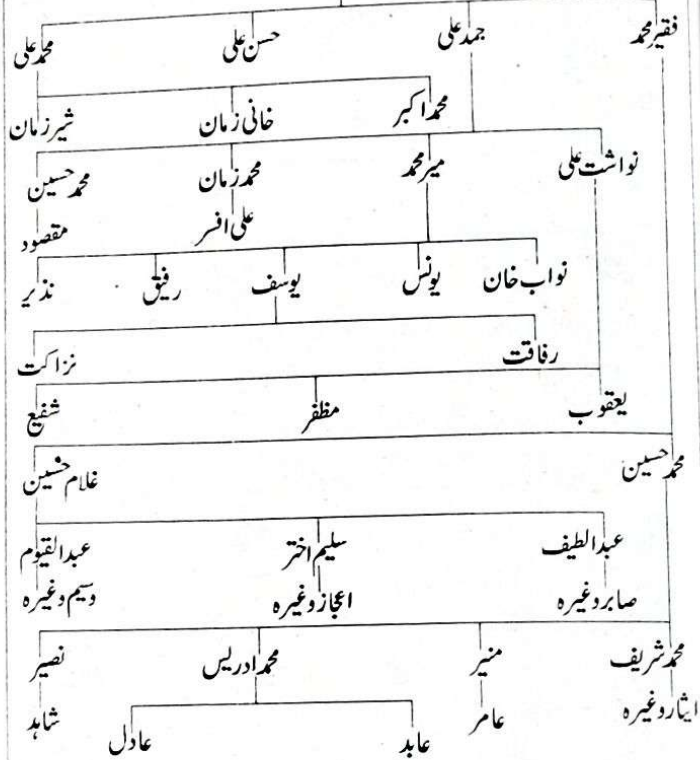 فقیر محمد جمد علی حسن علی محمد علی
محمد اکبر خانی زمان شیر زمان
نواشت علی میر محمد محمد زمان محمد حسین
علی افسر مقصود
نواب خان یونس یوسف رفیق نذیر
رفاقت نزاکت
یعقوب مظفر شفیع
محمد حسین غلام حسین
عبدالطیف سلیم اختر عبدالقیوم
صابر وغیرہ اعجاز وغیرہ وسیم وغیرہ
محمد شریف منیر محمد ادریس نصیر
ایثار وغیرہ عامر شاہد
عابد عادل